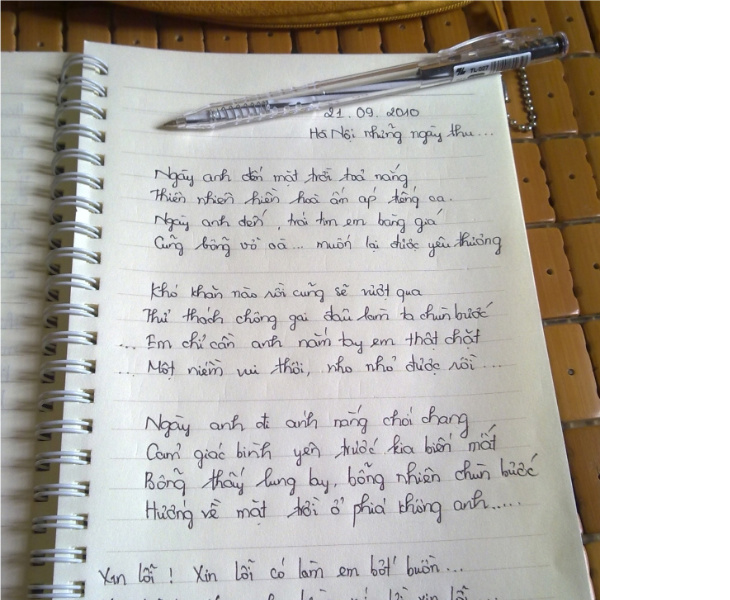 21.09.2010
Hà Nội những ngày thu...
Ngày anh đến mặt trời toả nắng
Thiên nhiên hiền hoà ấm áp tiếng ca.
Ngày anh đến, trái tim em băng giá
Cũng bỗng vỡ oà... muốn lại được yêu thương
Khó khăn nào rồi cũng sẽ vượt qua
Thử thách chông gai đâu làm ta chùn bước
... Em chỉ cần anh nắm tay em thật chặt
... Một niềm vui thôi, nho nhỏ được rồi...
Ngày anh đi ánh nắng chói chang
Cảm giác bình yên trước kia biến mất
Bỗng thấy lung lay, bỗng nhiên chùn bước
Hướng về mặt trời ở phía không anh.....
Xin lỗi! Xin lỗi có làm em bớt buồn...